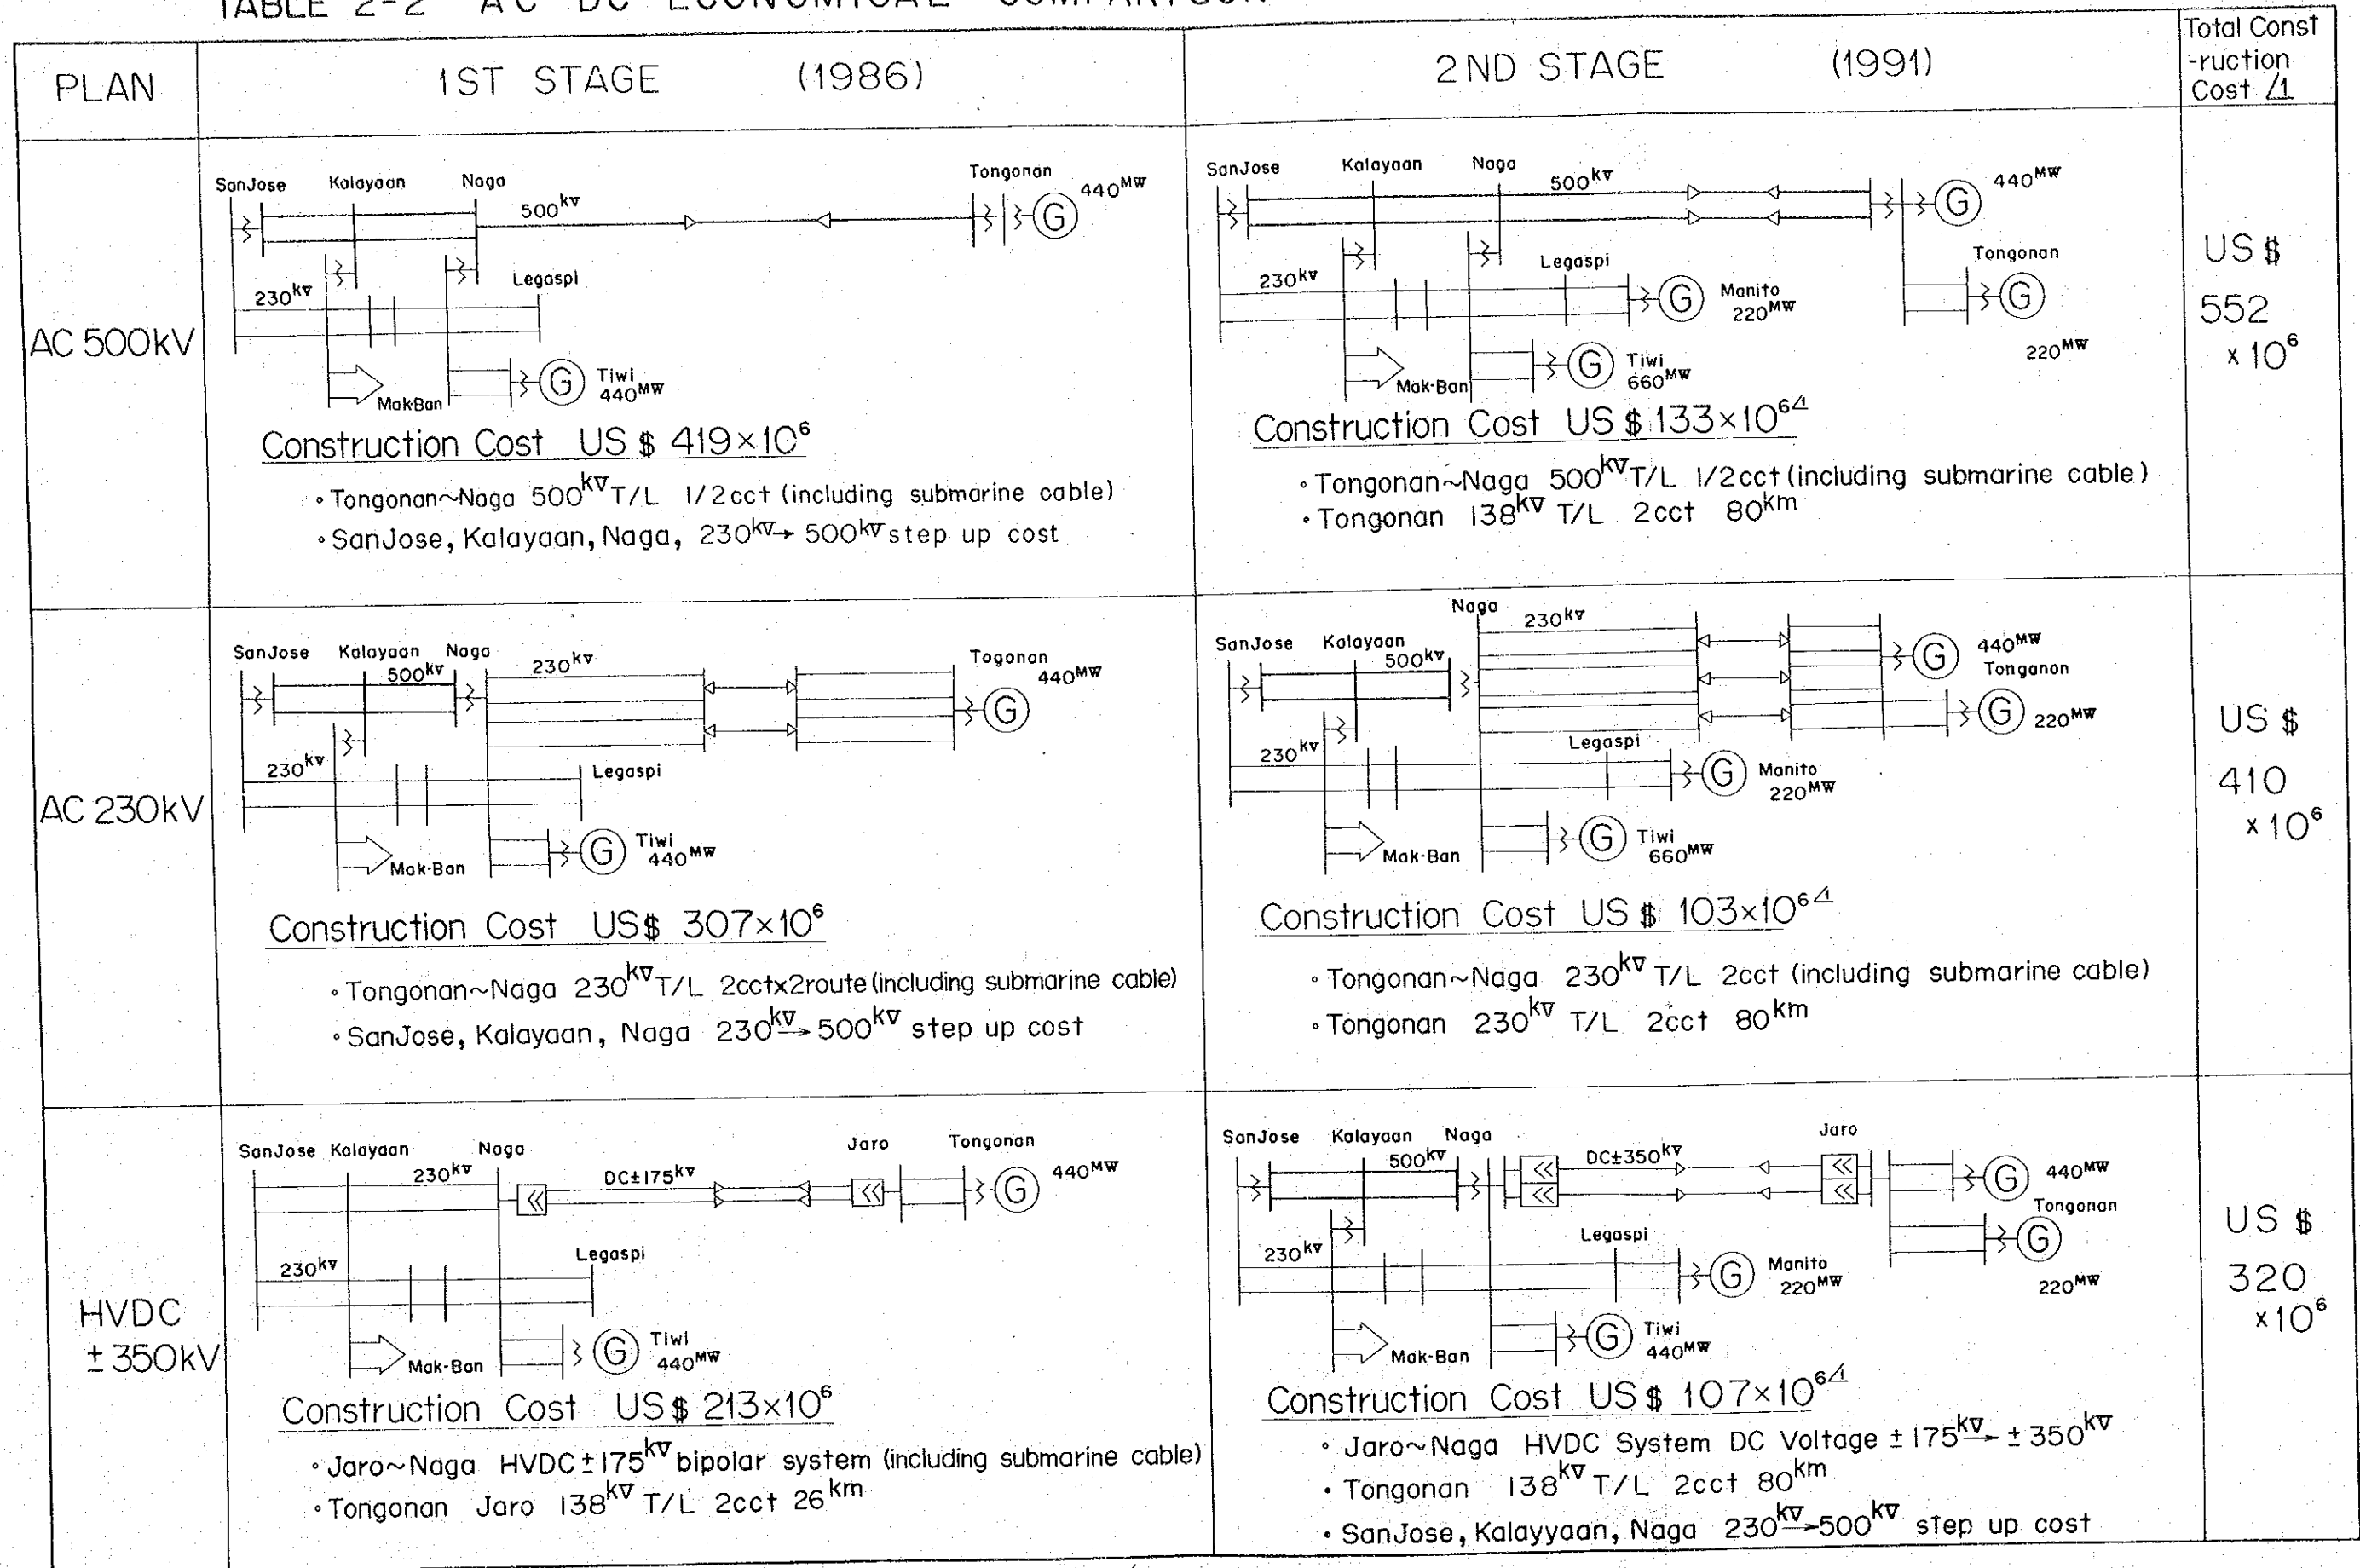 TABLE 2-2 AC DC ECONOMICAL COMPARISON
PLAN
1ST STAGE (1986)
2ND STAGE (1991)
Total Const
-ruction
Cost /1
AC 500kV
SanJose Kalayaan Naga Tongonan
500kV
440MW
G
230kV
Legaspi
Mak-Ban
G
Tiwi
440MW
Construction Cost US $ 419×10⁶
◦Tongonan~Naga 500kV T/L 1/2cct (including submarine cable)
◦SanJose, Kalayaan, Naga, 230kV→ 500kV step up cost
SanJose Kalayaan Naga
500kV
440MW
G
Tongonan
G
220MW
230kV
Legaspi
G
Manito
220MW
Mak-Ban
G
Tiwi
660MW
Construction Cost US $ 133×10⁶ /1
◦Tongonan~Naga 500kV T/L 1/2cct (including submarine cable)
•Tongonan 138kV T/L 2cct 80km
US $
552
×10⁶
AC 230kV
SanJose Kalayaan Naga Togonan
500kV 230kV
440MW
G
230kV
Legaspi
Mak-Ban
G
Tiwi
440MW
Construction Cost US $ 307×10⁶
◦Tongonan~Naga 230kV T/L 2cct×2route (including submarine cable)
◦SanJose, Kalayaan, Naga 230kV→500kV step up cost
Naga
230kV
SanJose Kalayaan
500kV
G
440MW
Tonganan
G
220MW
230kV
Legaspi
G
Manito
220MW
Mak-Ban
G
Tiwi
660MW
Construction Cost US $ 103×10⁶ /1
◦Tongonan~Naga 230kV T/L 2cct (including submarine cable)
◦Tongonan 230kV T/L 2cct 80km
US $
410
×10⁶
HVDC
±350kV
SanJose Kalayaan Naga Jaro Tongonan
230kV DC±175kV
440MW
G
230kV
Legaspi
Mak-Ban
G
Tiwi
440MW
Construction Cost US $ 213×10⁶
◦Jaro~Naga HVDC±175kV bipolar system (including submarine cable)
◦Tongonan Jaro 138kV T/L 2cct 26km
SanJose Kalayaan Naga Jaro
500kV DC±350kV
G
440MW
Tongonan
G
220MW
230kV
Legaspi
G
Manito
220MW
Mak-Ban
G
Tiwi
440MW
Construction Cost US $ 107×10⁶ /1
◦Jaro~Naga HVDC System DC Voltage ±175kV→ ±350kV
•Tongonan 138kV T/L 2cct 80km
•SanJose, Kalayyaan, Naga 230kV→500kV step up cost
US $
320
×10⁶